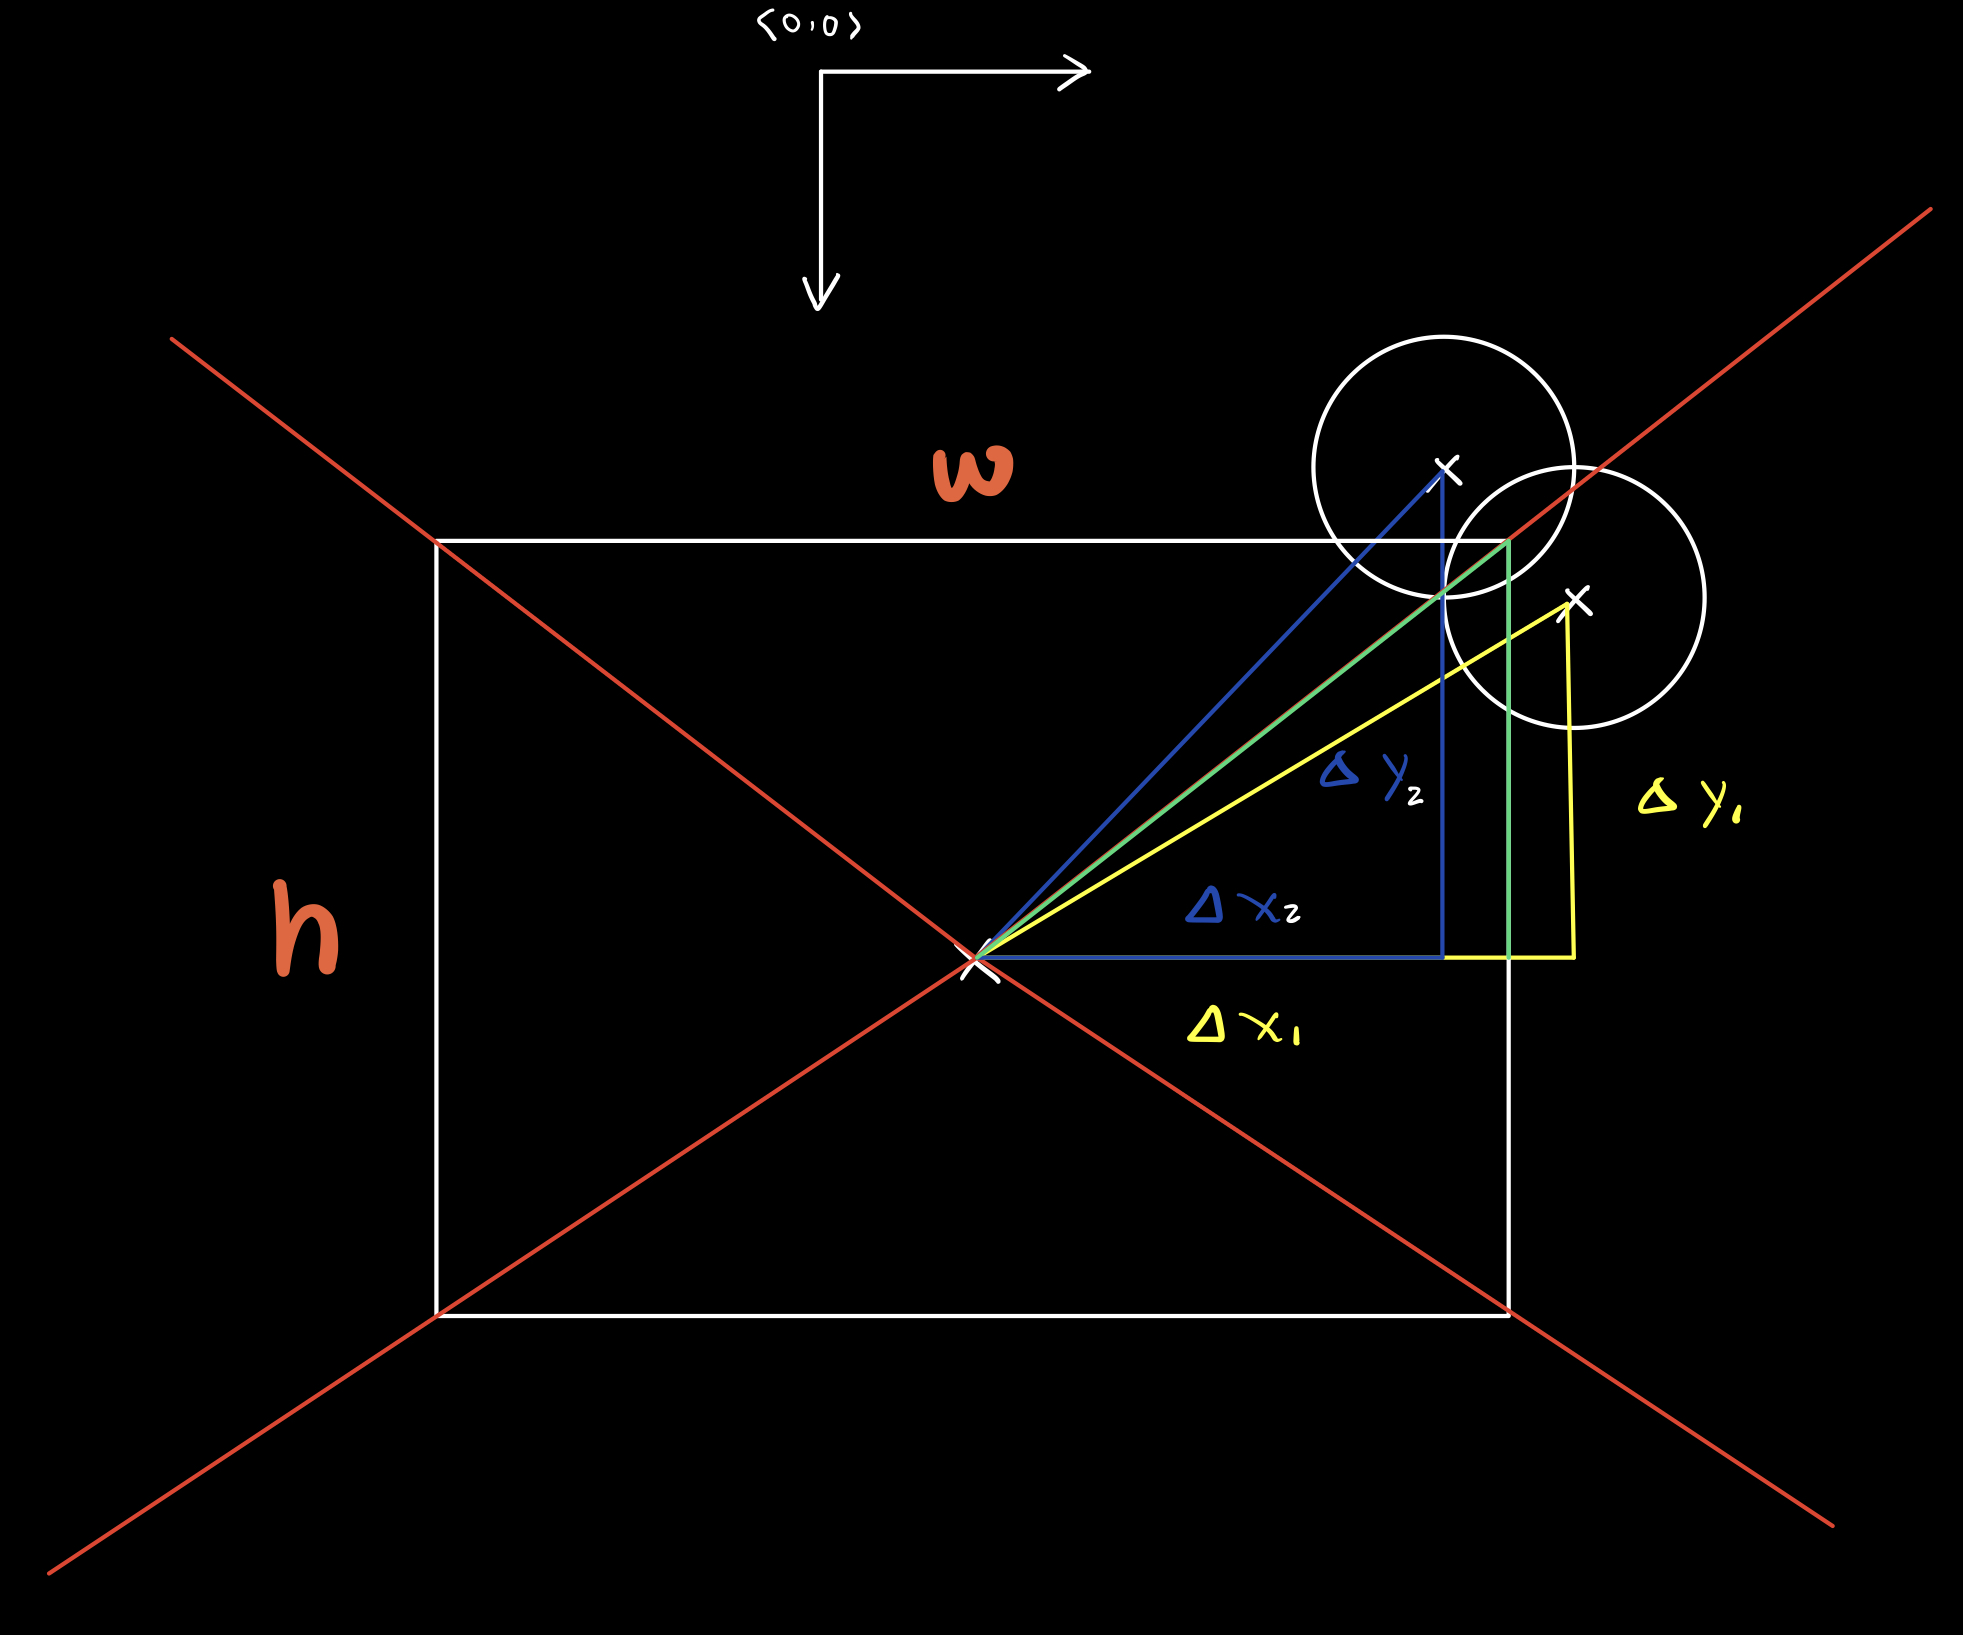 (0,0)
w
h
Δy₂
Δy₁
Δx₂
Δx₁